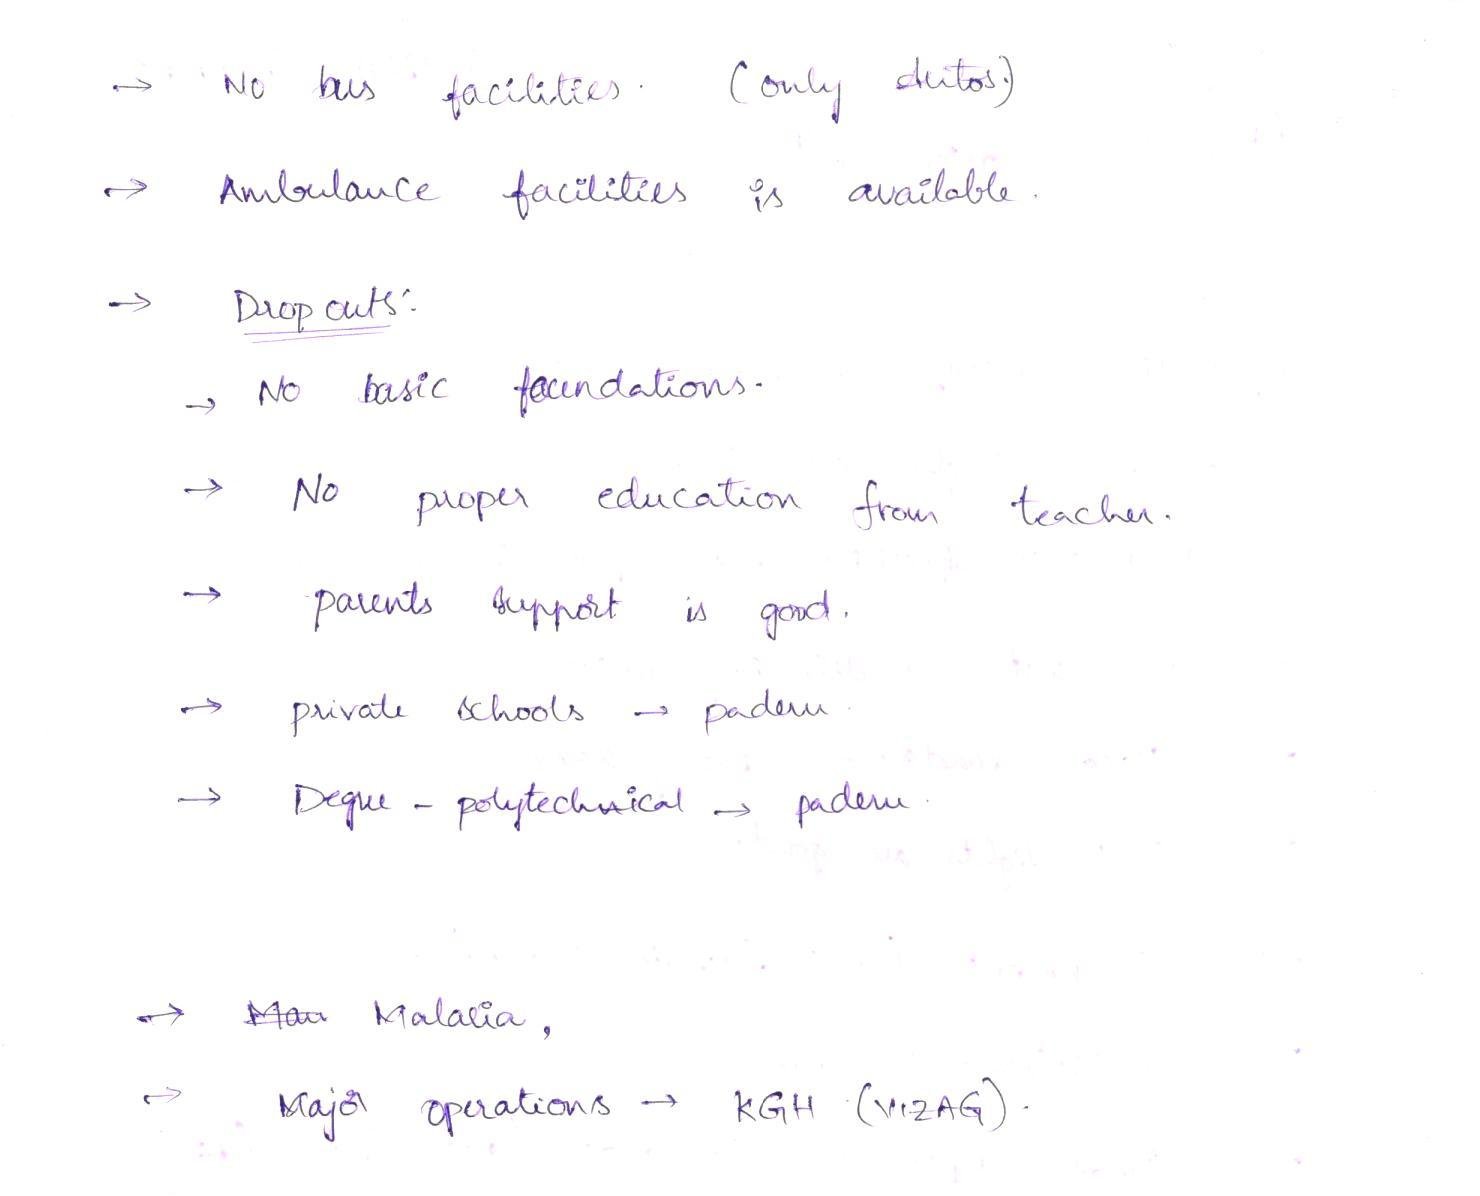 → No bus facilities. (only autos.)
→ Ambulance facilities is available.
→ Drop outs:
→ No basic foundations.
→ No proper education from teacher.
→ parents support is good.
→ private schools → paderu.
→ Degree - polytechnical → paderu.
→ Malaria,
→ Major operations → KGH (VIZAG).